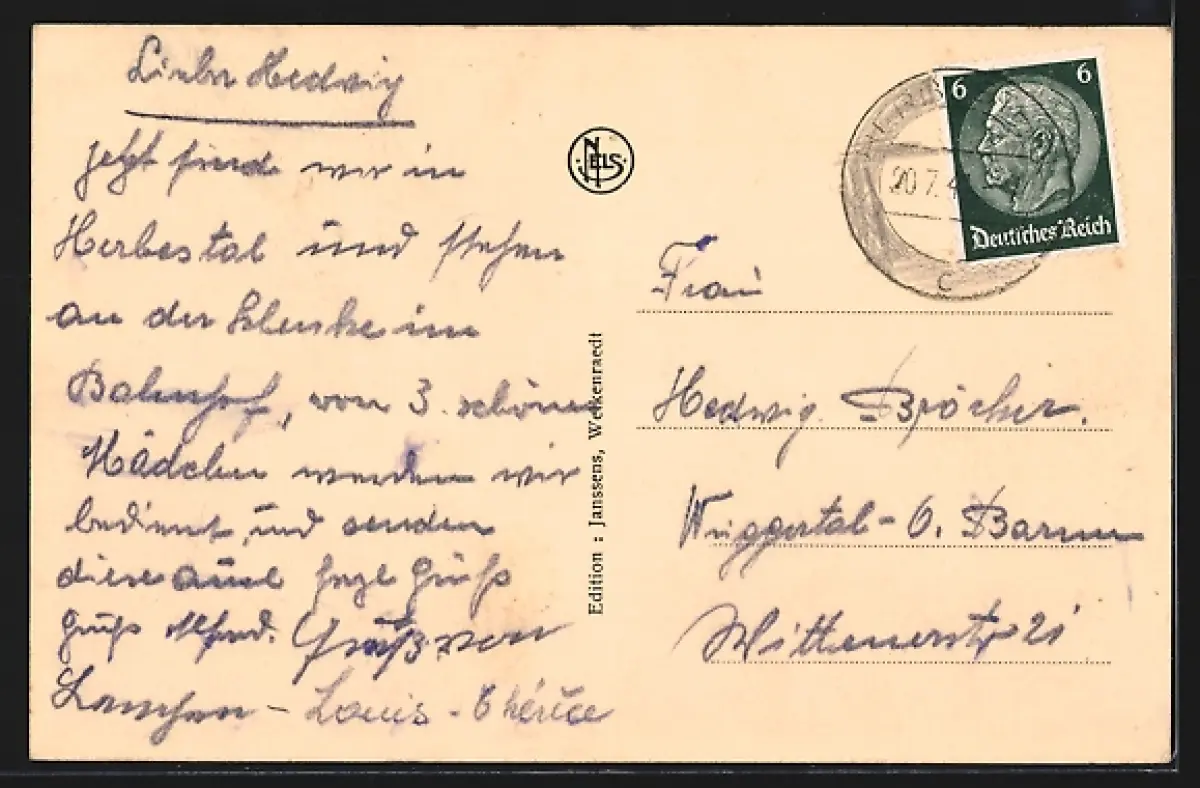 Liebe Hedwig
jetzt sind wir in
Herbestal und stehen
an der Schenke im
Bahnhof, von 3 schönen
Mädchen werden wir
bedient, und senden
diese
Gruß Grüße von
– Louis –
NELS
Edition : Janssens, Welkenraedt
20.7.4
C
6 6
Deutsches Reich
Frau
Hedwig Bröcker.
Wuppertal – O. Barmen
Wittenerstr 21